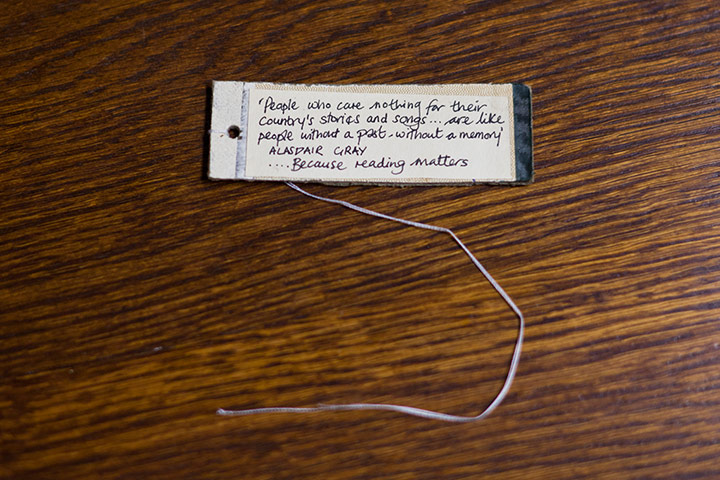 'People who care nothing for their
country's stories and songs... are like
people without a past - without a memory'
ALASDAIR GRAY
....Because reading matters